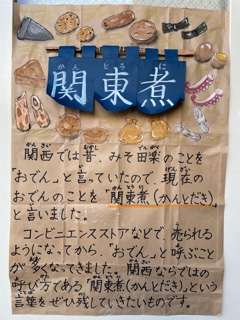 関東煮
関西では昔、みそ田楽のことを
「おでん」と言っていたので、現在の
おでんのことを「関東煮(かんとだき)」
と言いました。
コンビニエンスストアなどで売られる
ようになってから、「おでん」と呼ぶことが
多くなってきました。関西ならではの
呼び方である「関東煮(かんとだき)」という
言葉をぜひ残していきたいものです。